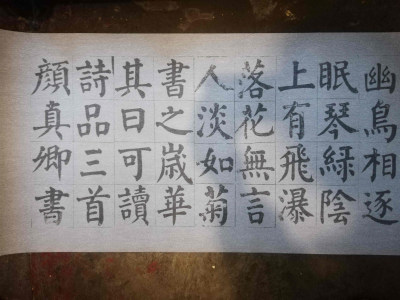 幽鳥相逐
眠琴綠陰
上有飛瀑
落花無言
人淡如菊
書之歲華
其曰可讀
詩品三首
顏真卿書